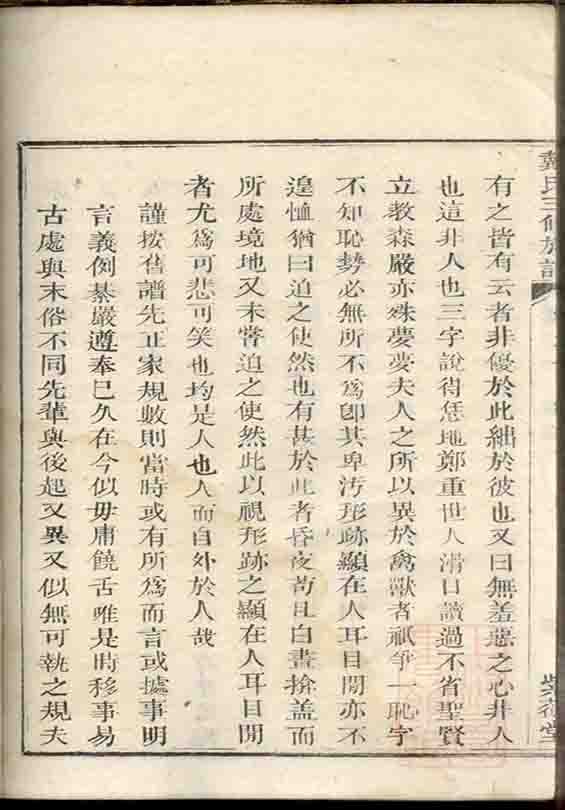 戴氏三修族譜
有之皆有云者非優於此絀於彼也又曰無羞惡之心非人
也這非人也三字說得恁地鄭重世人滑口讀過不省聖賢
立教森嚴亦殊夢夢夫人之所以異於禽獸者祇爭一恥字
不知恥勢必無所不為卽其卑汚形跡顯在人耳目間亦不
遑恤猶曰迫之使然也有甚於此者昏夜苟且白晝揜盖而
所處境地又未嘗迫之使然此以視形跡之顯在人耳目間
者尤為可悲可笑也均是人也人而自外於人哉
謹按舊譜先正家規數則當時或有所為而言或據事明
言義例綦嚴遵奉已久在今似毋庸饒舌唯是時移事易
古處與末俗不同先輩與後起又異又似無可執之規夫